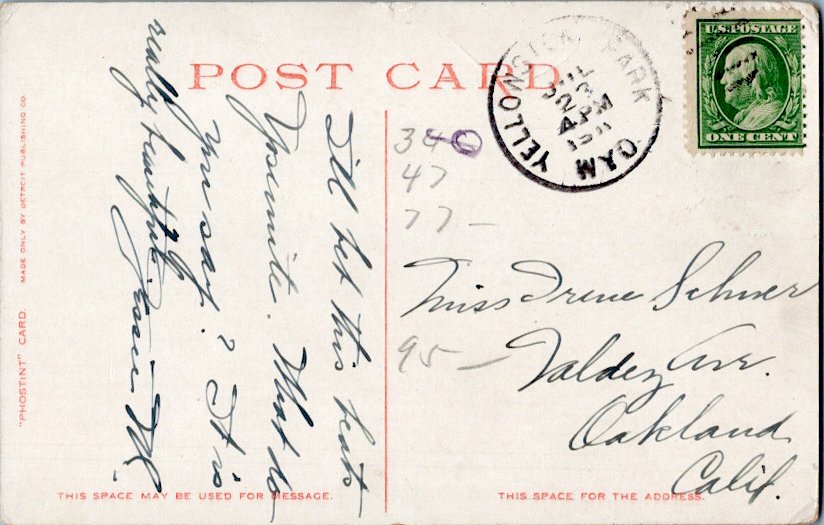 POST CARD
I'll bet this beats
Yosemite. What do
you say? It is
really beautiful.
Jessie M.
YELLOWSTONE PARK
JUL
23
4 PM
1911
WYO
U.S. POSTAGE
ONE CENT
346
0
47
77 -
Miss Irene Schwer
95 -
Valdez Ave.
Oakland
Calif.
"PHOSTINT" CARD. MADE ONLY BY DETROIT PUBLISHING CO.
THIS SPACE MAY BE USED FOR MESSAGE.
THIS SPACE FOR THE ADDRESS.